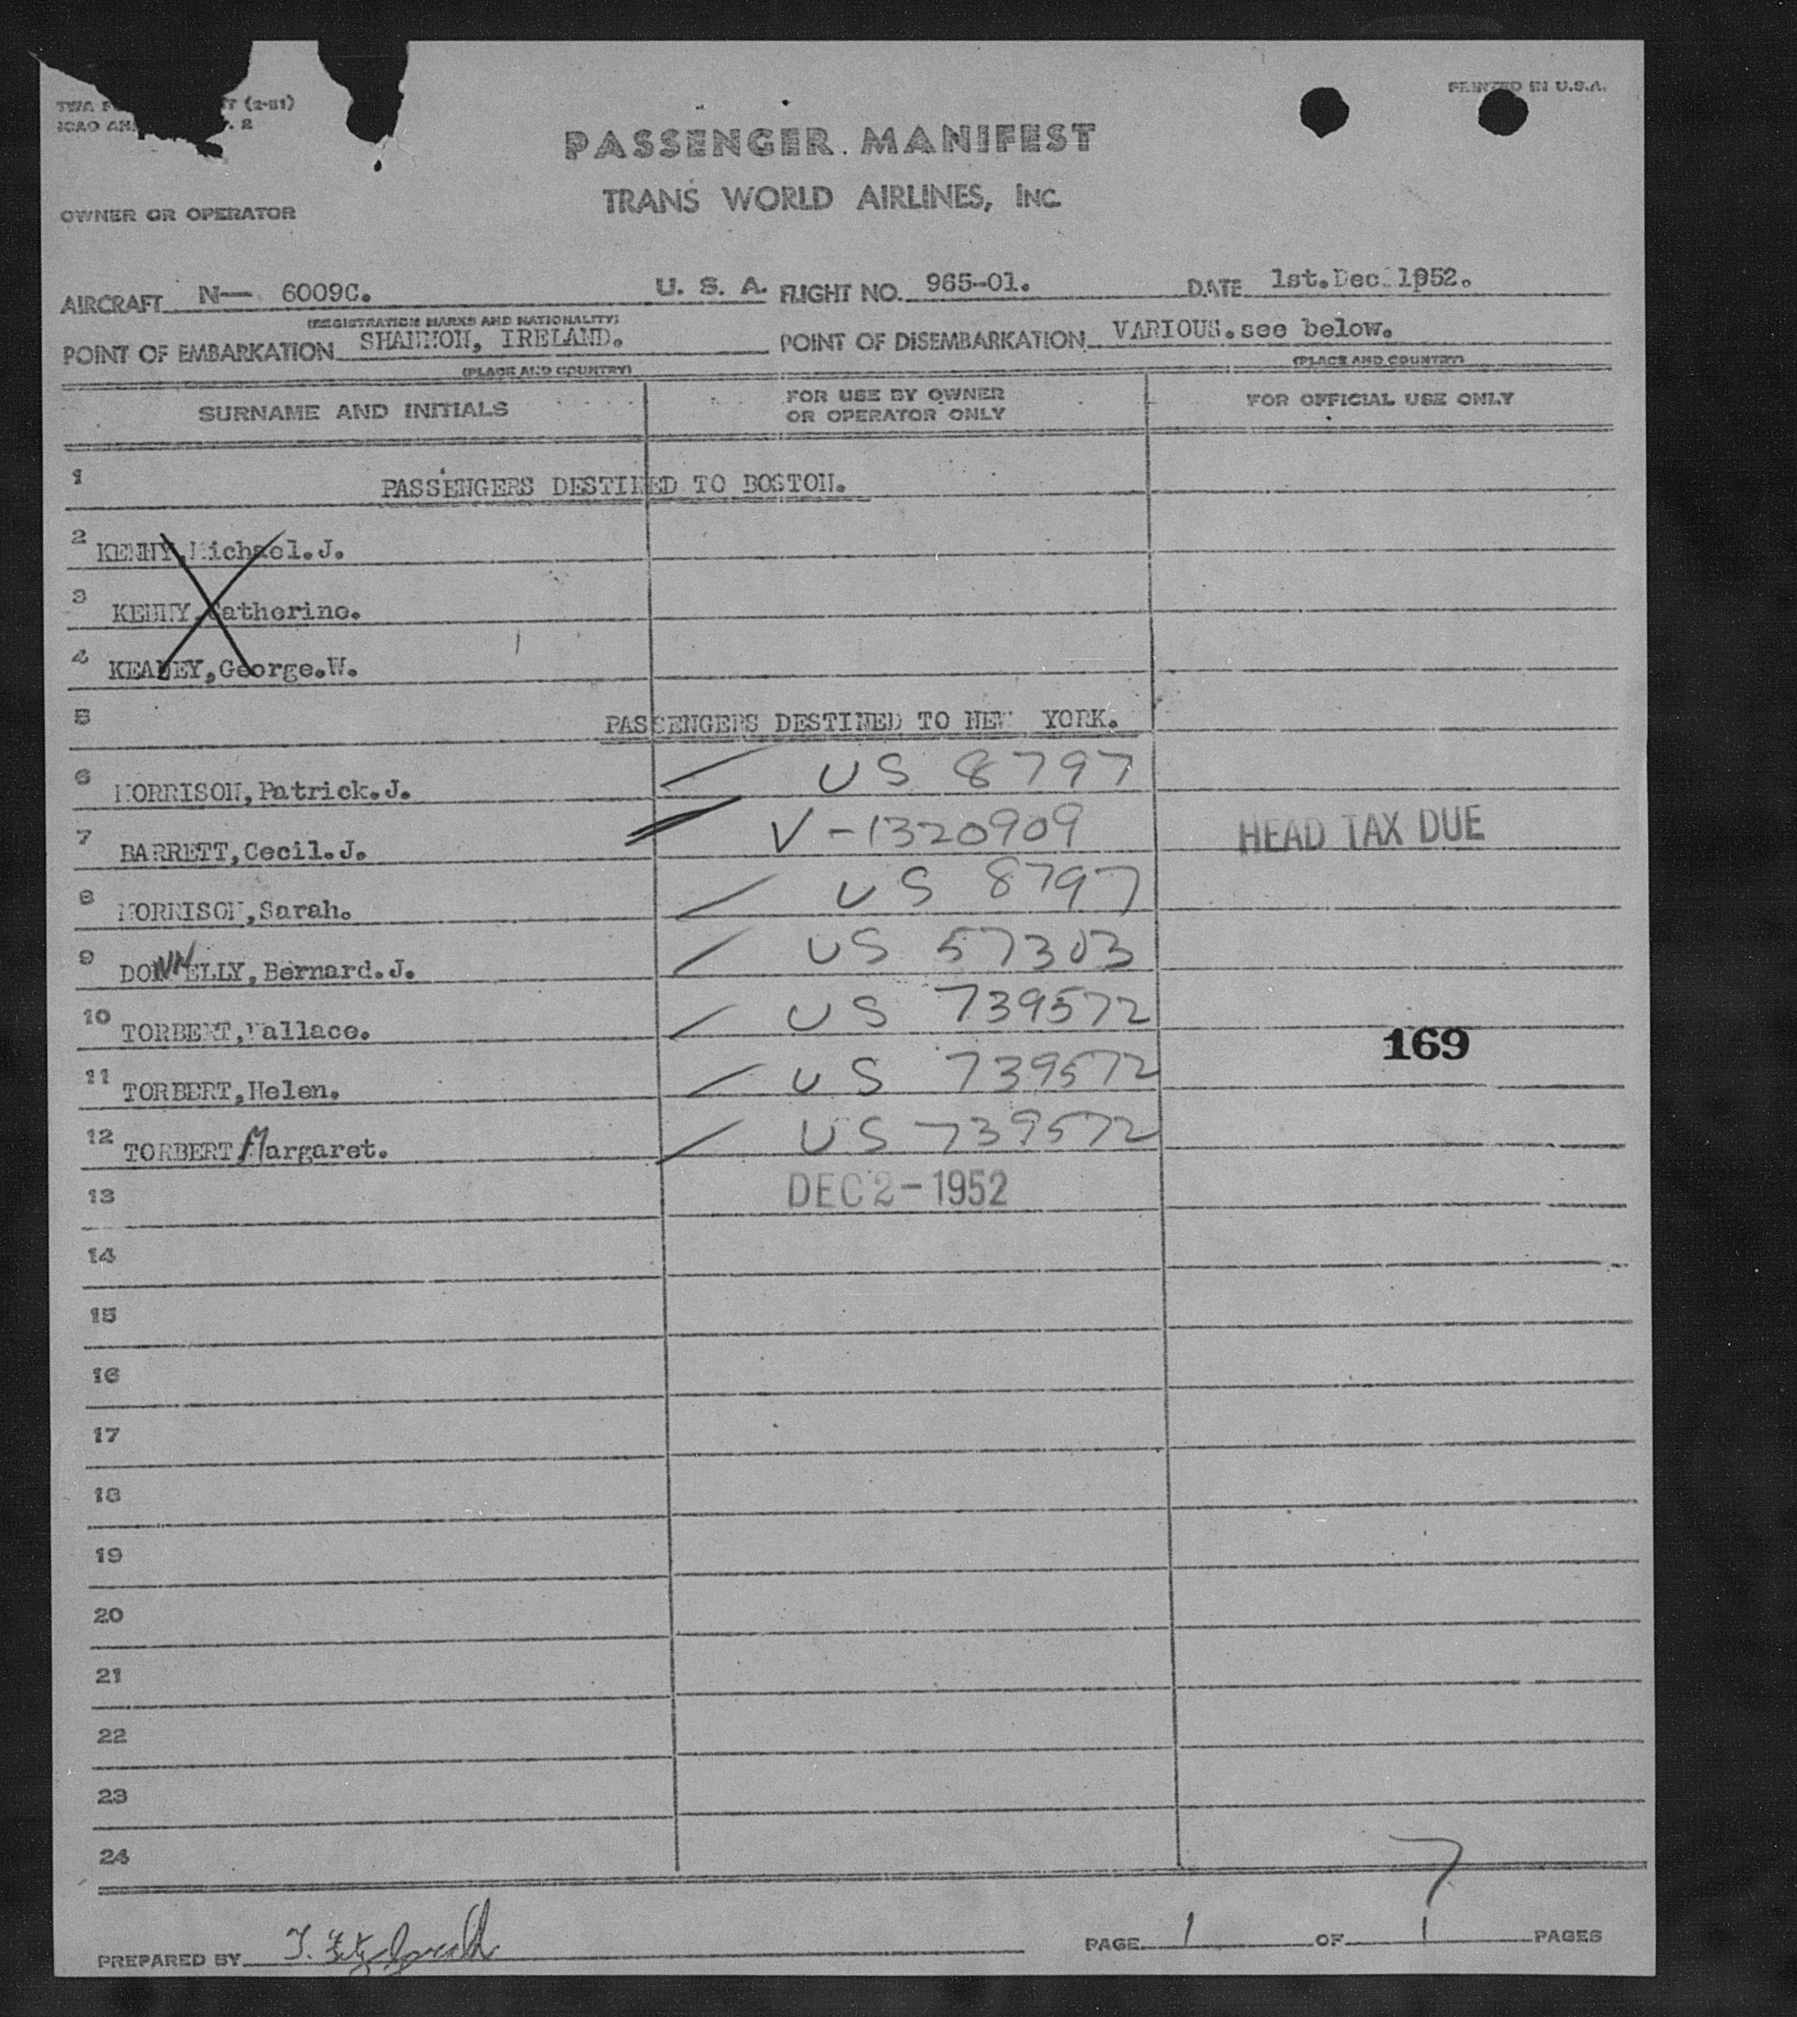 PRINTED IN U.S.A.
TWA (2-51)
ICAO 2
PASSENGER MANIFEST
TRANS WORLD AIRLINES, INC.
OWNER OR OPERATOR
AIRCRAFT N— 6009C. U. S. A. FLIGHT NO. 965-01. DATE 1st.Dec.1952.
(REGISTRATION MARKS AND NATIONALITY)
POINT OF EMBARKATION SHANNON, IRELAND. POINT OF DISEMBARKATION VARIOUS.see below.
(PLACE AND COUNTRY) (PLACE AND COUNTRY)
SURNAME AND INITIALS FOR USE BY OWNER OR OPERATOR ONLY FOR OFFICIAL USE ONLY
1 PASSENGERS DESTINED TO BOSTON.
2 KENNY,Michael.J.
3 KENNY,Catherine.
4 KEANEY,George.W.
5 PASSENGERS DESTINED TO NEW YORK.
6 MORRISON,Patrick.J. US 8797
7 BARRETT,Cecil.J. V-1320909 HEAD TAX DUE
8 MORRISON,Sarah. US 8797
9 DONNELLY,Bernard.J. US 57303
10 TORBERT,Wallace. US 739572
169
11 TORBERT,Helen. US 739572
12 TORBERT Margaret. US 739572
13 DEC 2-1952
14
15
16
17
18
19
20
21
22
23
24
7
PREPARED BY T. Fitzgerald PAGE 1 OF 1 PAGES